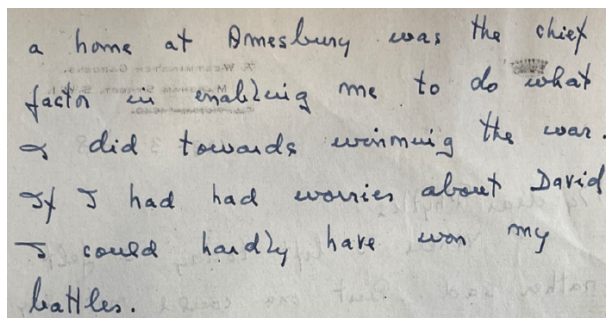 a home at Amesbury was the chief
factor in enabling me to do what
I did towards winning the war.
If I had had worries about David
I could hardly have won my
battles.